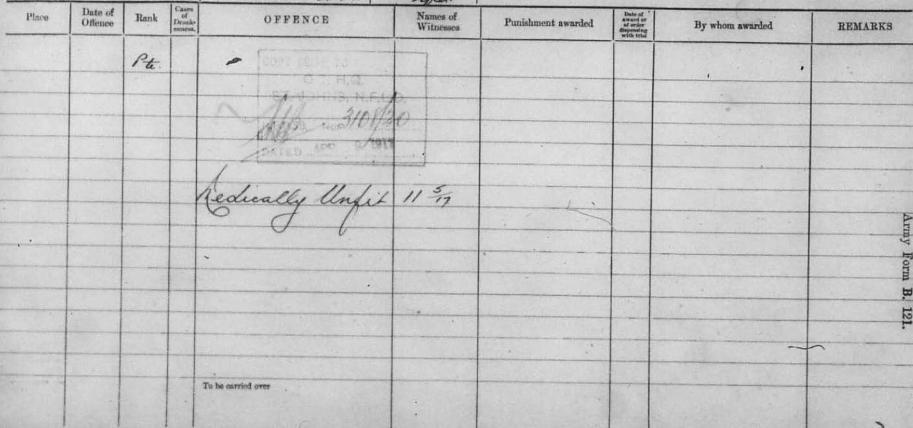 Place Date of Offence Rank Cases of Drunkenness. OFFENCE Names of Witnesses Punishment awarded Date of award or of order dispensing with trial By whom awarded REMARKS
Pte.
ST. JOHNS, N.F.L.D.
3101/30
DATED
Medically Unfit 11 5/17
To be carried over
Army Form B. 121.